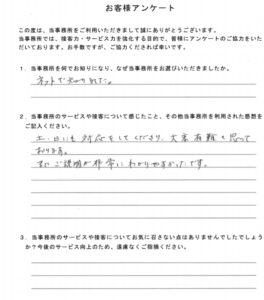 お客様アンケート
この度は、当事務所をご利用いただきまして誠にありがとうございます。
当事務所では、接客力・サービス力を強化する目的で、皆様にアンケートのご協力をいた
だいております。お手数ですが、ご協力くだされば幸いです。
1．当事務所を何でお知りになり、なぜ当事務所をお選びいただきましたか。
ネットで知りました。
2．当事務所のサービスや接客について感じたこと、その他当事務所を利用された感想を
ご記入ください。
土・日にも対応をしてくださり、大変有難く思って
おります。
また ご説明が非常にわかりやすかったです。
3．当事務所のサービスや接客についてお気に召さない点はありませんでしたでしょう
か？今後のサービス向上のため、遠慮なくご指摘ください。